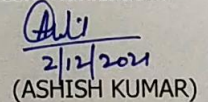 2/12/2021
(ASHISH KUMAR)